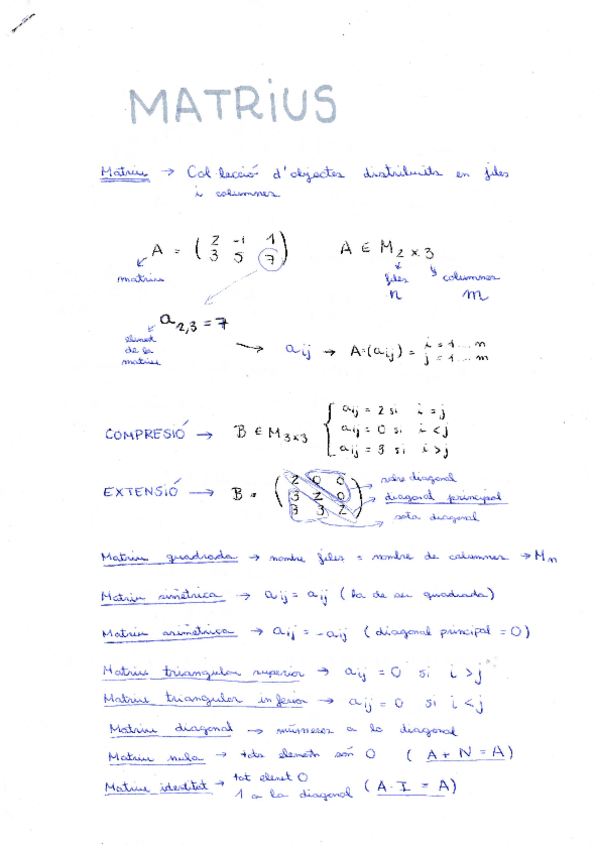 MATRIUS
Matriu → Col·lecció d'objectes distribuïts en files
i columnes
A = ( 2 -1 1
3 5 7 )
A ∈ M2×3
matriu
files columnes
n m
a2,3 = 7
element
de la
matriu
→ aij → A=(aij) = i = 1 ... n
j = 1 ... m
COMPRESIÓ → B ∈ M3×3 { aij = 2 si i = j
aij = 0 si i < j
aij = 3 si i > j
EXTENSIÓ → B = ( 2 0 0
3 2 0
3 3 2 )
sobre diagonal
diagonal principal
sota diagonal
Matriu quadrada → nombre files = nombre de columnes → Mn
Matriu simètrica → aij = aij (ha de ser quadrada)
Matriu asimètrica → aij = -aij (diagonal principal = 0)
Matriu triangular superior → aij = 0 si i > j
Matriu triangular inferior → aij = 0 si i < j
Matriu diagonal → números a la diagonal
Matriu nula → tots elements són 0 (A + N = A)
Matriu identitat → tot element 0
1 a la diagonal (A · I = A)